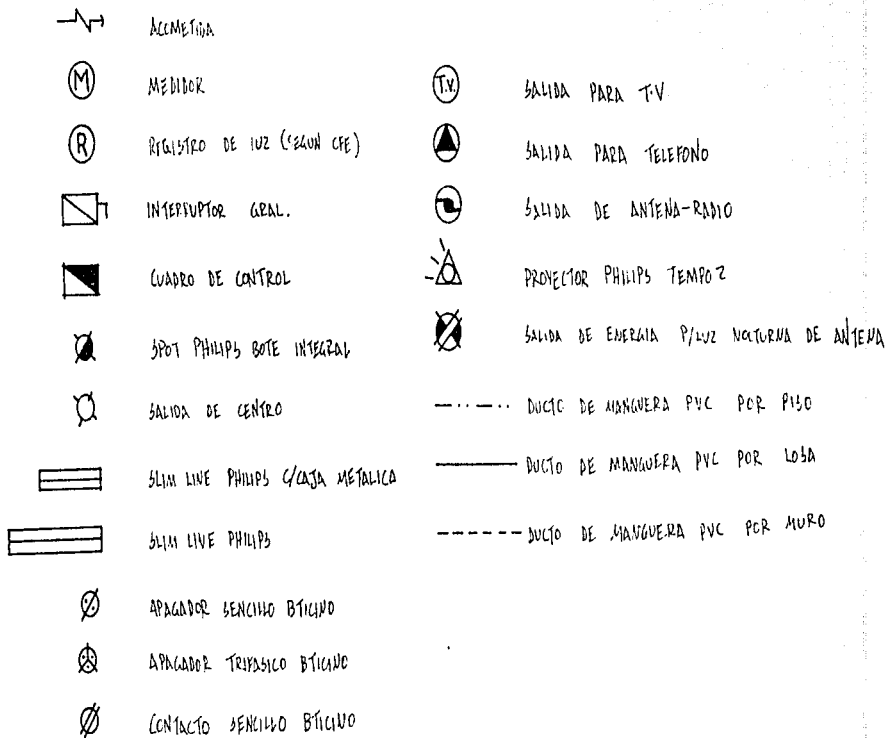 ACOMETIDA
M MEDIDOR
R REGISTRO DE LUZ (SEGUN CFE)
INTERRUPTOR GRAL.
CUADRO DE CONTROL
SPOT PHILIPS BOTE INTEGRAL
SALIDA DE CENTRO
SLIM LINE PHILIPS C/CAJA METALICA
SLIM LINE PHILIPS
APAGADOR SENCILLO BTICINO
APAGADOR TRIFASICO BTICINO
CONTACTO SENCILLO BTICINO
T.V. SALIDA PARA T.V
SALIDA PARA TELEFONO
SALIDA DE ANTENA-RADIO
PROYECTOR PHILIPS TEMPO 2
SALIDA DE ENERGIA P/LUZ NOCTURNA DE ANTENA
DUCTO DE MANGUERA PVC POR PISO
DUCTO DE MANGUERA PVC POR LOSA
DUCTO DE MANGUERA PVC POR MURO